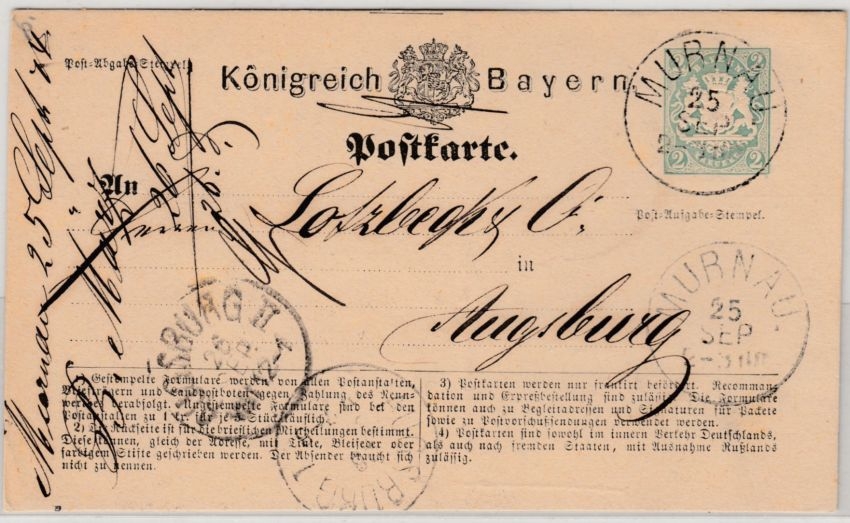 Post-Abgabe-Stempel.
Königreich Bayern
Postkarte.
MURNAU
25
SEP
2
2
An
Herren
Lotzbeck & C.
in
Augsburg
Post-Aufgabe-Stempel.
MURNAU
25
SEP
Murnau 25 Sept
26 Sept
AUGSBURG II
1) Gestempelte Formulare werden von allen Postanstalten,
Briefträgern und Landpostboten gegen Zahlung des Nenn-
werthes verabfolgt. Ungestempelte Formulare sind bei den
Postanstalten zu 1 kr. für je 5 Stück käuflich.
2) Die Rückseite ist für die brieflichen Mittheilungen bestimmt.
Diese können, gleich der Adresse, mit Tinte, Bleifeder oder
farbigem Stifte geschrieben werden. Der Absender braucht sich
nicht zu nennen.
3) Postkarten werden nur frankirt befördert. Recomman-
dation und Expreßbestellung sind zulässig. Die Formulare
können auch zu Begleitadressen und Signaturen für Packete
sowie zu Postvorschußsendungen verwendet werden.
4) Postkarten sind sowohl im innern Verkehr Deutschlands,
als auch nach fremden Staaten, mit Ausnahme Rußlands
zulässig.